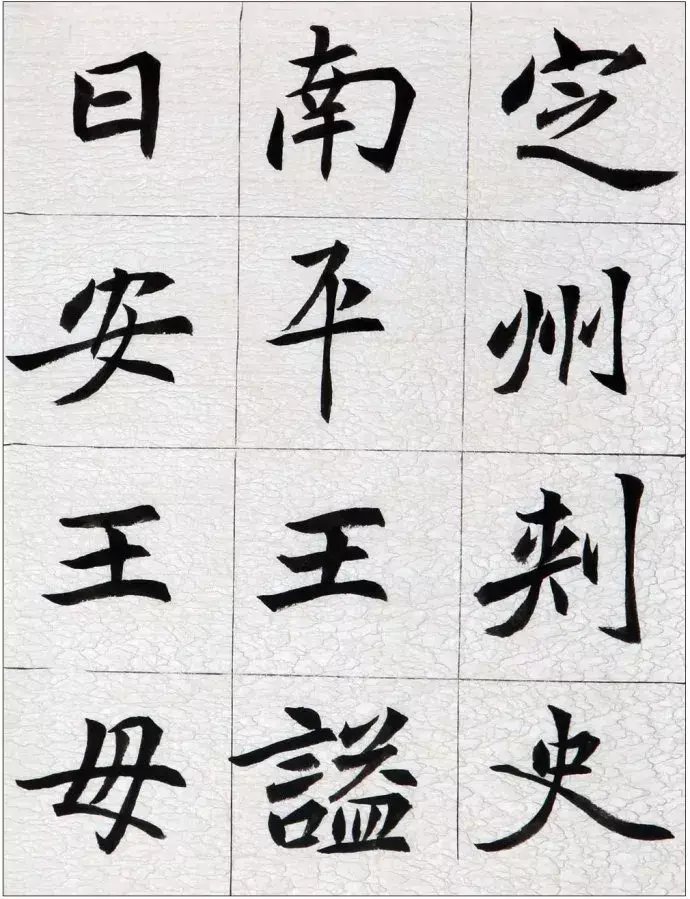 定州刺史
南平王謚
日安王母